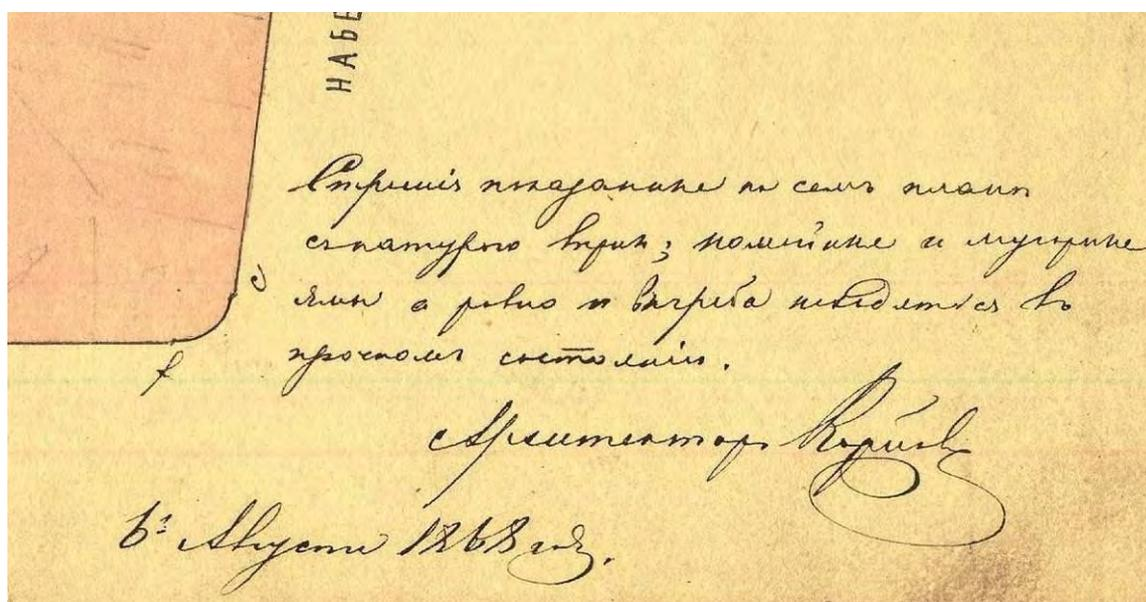 НАБЕ
Строенія показанные на семъ планѣ
съ натурою вѣрны; помойные и мусорные
ямы а равно и выгреба находятся въ
прочномъ состояніи.
с
f
Архитекторъ
6го Августа 1868 года.